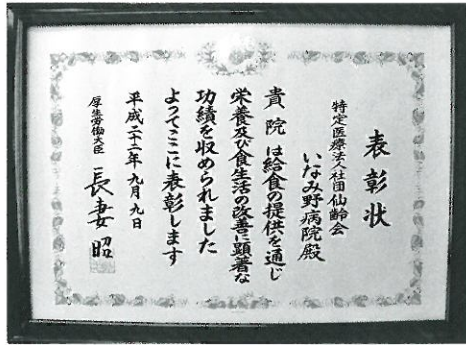 表彰状
特定医療法人社団仙齢会
いなみ野病院殿
貴院は給食の提供を通じ
栄養及び食生活の改善に顕著な
功績を収められました
よってここに表彰します
平成二十二年九月九日
厚生労働大臣 長妻昭